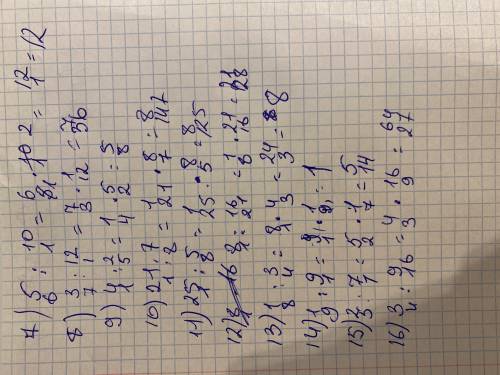 7) 5/6 : 10/1 = 6/51 · 10/1 2 = 12/1 = 12
8) 3/7 : 12/1 = 7/3 · 1/12 = 7/36
9) 4/1 : 2/5 = 1/4 · 5/2 = 5/8
10) 21/1 : 7/8 = 1/21 · 8/7 = 8/147
11) 25/1 : 5/8 = 1/25 · 8/5 = 8/125
12) 8/1 : 16/21 = 1/8 · 21/16 = 21/128
13) 1/8 : 3/4 = 8/1 · 4/3 = 24/3 = 8
14) 1/9 : 9/1 = 9/1 · 1/9 = 1
15) : 7/1 = 5/2 · 1/7 = 5/14
16) 3/4 : 9/16 = 4/3 · 16/9 = 64/27